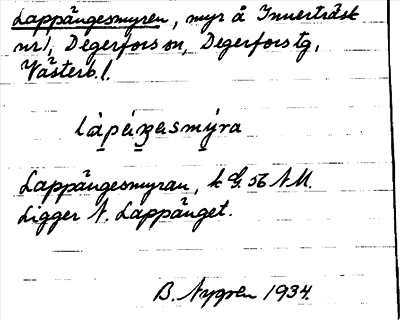 Lappängesmyren, myr å Innerträsk
nr 1, Degerfors sn, Degerfors tg,
Västerb. l.
làpáŋasmýra
Lappängesmyran, k G. 56 N.M.
Ligger N. Lappänget.
B. Nygren 1934.